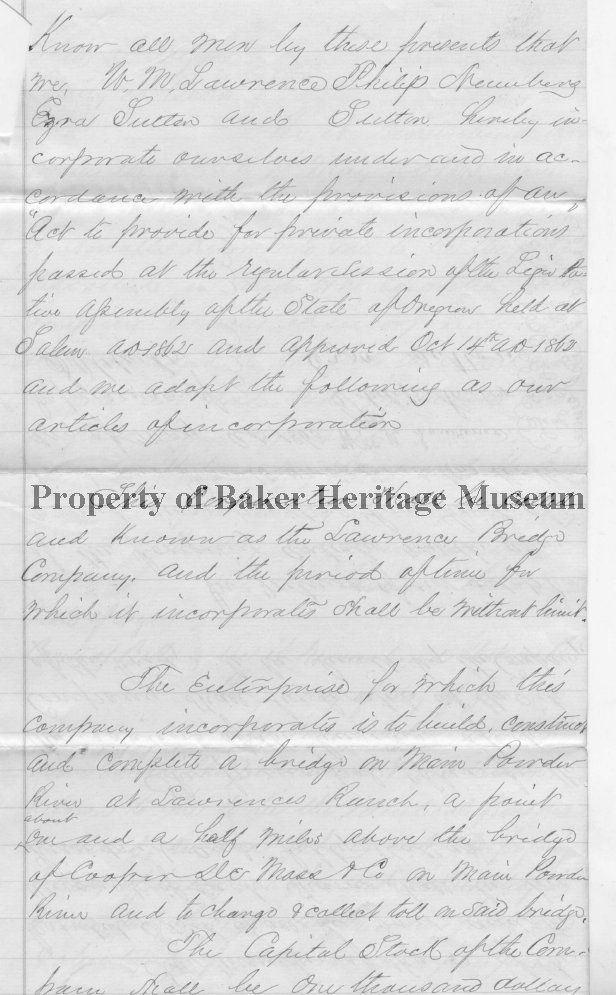 Know all men by these presents that
we, W. M. Lawrence Philip Newberg
Ezra Sutton and Sutton hereby in-
corporate ourselves under and in ac-
cordance with the provisions of an
"Act to provide for private incorporations"
passed at the regular session of the Legisla-
tive Assembly of the State of Oregon held at
Salem AD 1862 and approved Oct 14th AD 1862
and we adopt the following as our
articles of incorporation
This Corporation shall be
Property of Baker Heritage Museum
and Known as the Lawrence Bridge
Company. and the period of time for
which it incorporates shall be without limit.
The Enterprise for which this
company incorporates is to build, construct
and complete a bridge on Main Powder
River at Lawrences Ranch, a point
about
one and a half miles above the bridge
of Cooper De Moss & Co on Main Powder
River and to charge & collect toll on said bridge.
The Capital Stock of the Com-
pany shall be One thousand dollars